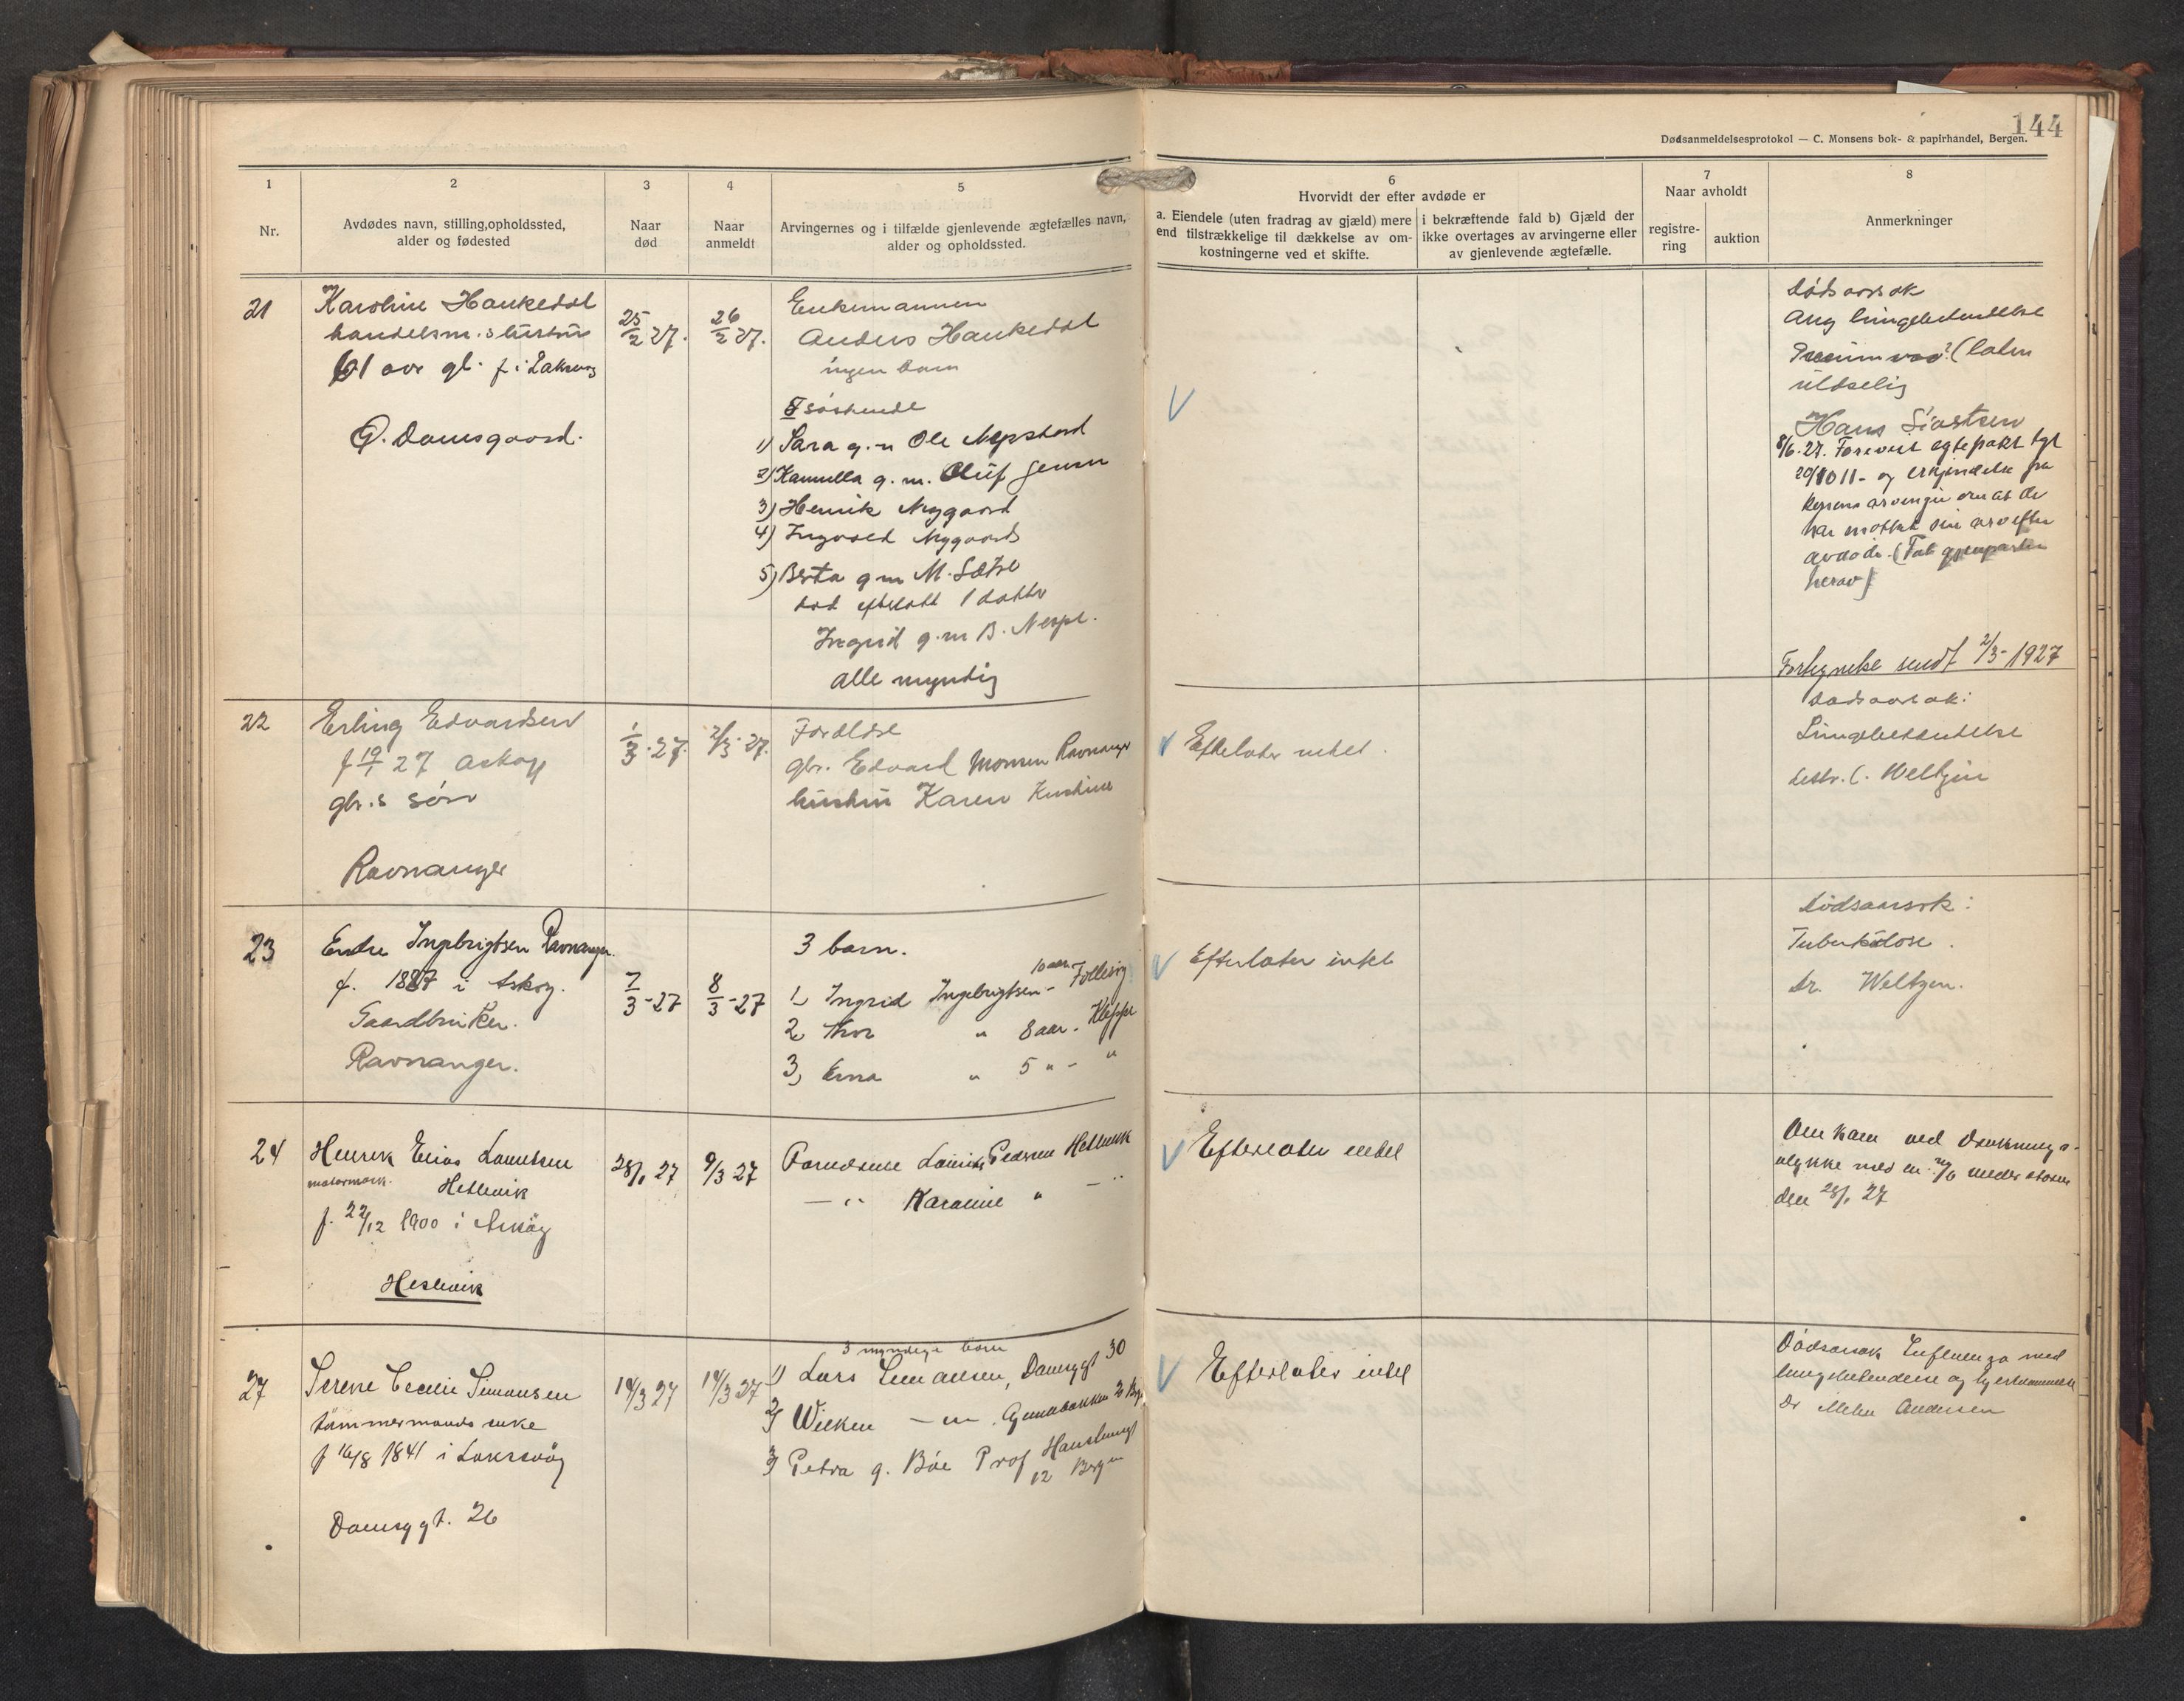 144
Dødsanmeldelsesprotokol — C. Monsens bok- & papirhandel, Bergen.
1
Nr.
2
Avdødes navn, stilling, opholdssted,
alder og fødested
3
Naar
død
4
Naar
anmeldt
5
Arvingernes og i tilfælde gjenlevende ægtefælles navn,
alder og opholdssted.
6
Hvorvidt der efter avdøde er
a. Eiendele (uten fradrag av gjæld) mere
end tilstrækkelige til dækkelse av om-
kostningerne ved et skifte.
i bekræftende fald b) Gjæld der
ikke overtages av arvingerne eller
av gjenlevende ægtefælle.
7
Naar avholdt
registre-
ring
auktion
8
Anmerkninger
21
Karoline Haukedal
handelsm.s hustru
61 aar gl. f i Laksevåg
G. Damsgaard.
25/2 27.
26/2 27.
Enkemannen
Anders Haukedal
ingen barn
søskende
1) Sara g.m Ole
2) Kamilla g.m. Oluf Jensen
3) Henrik Nygaard
4) Ingvald Nygaard
5) Berta g m M. Sætre
død efterlatt 1 datter
Ingrid g.m B.
alle myndig
Dødsaarsak
Ang lungebetendelse
Hans
8/6.27. Forevist egtepakt tgl
29/10 11- og erkjendelse fra
arvinger om at de
har mottat sin arv efter
avdøde. (Fåt gjenparten
herav)
sendt 2/3-1927
22
Erling Edvardsen
f 19/1 27 Askøy
gbr.s søn
Ravnanger
1/3.27.
2/3.27.
Forældre
gbr. Edvard Monsen Ravnanger
hustru Karen Kristine
Efterlater intet.
Dødsaarsak:
Lungebetendelse
distr. l. Weltzin
23
Endre Ingebrigtsen Ravnanger.
f. 1887 i Askøy.
Gaardbruker.
Ravnanger.
7/3-27
8/3-27
3 barn.
1, Ingrid Ingebrigtsen - 10 aar Follesøy
2, Thor " 8 aar. Kleppe
3, Erna " 5 " - "
Efterlater intet
Dødsaarsak:
Tuberkulose.
Dr. Weltzen.
24
Henrik Elias Lauritsen
motormask. Hetlevik
f. 22/12 1900 i Askøy
Hetlevik
28/1 27
9/3 27
Forældrene Laurits Pedersen Hetlevik
— " Karoline " — "
Efterlater intet
Omkom ved drukknings-
ulykke med m. under storm
den 28/1 27
27
Serene Cecilie Simonsen
tømmermands enke
f 16/8 1841 i Laksevåg
Damsggt. 26
14/3 27
14/3 27
3 myndige barn
1) Lars Simonsen, Damsggt 30
2) Wilken — " — 2 Bg.
3) Petra g. Bøe Prof Hansteensgt
12 Bergen
Efterlater intet
Dødsarsak Influenza med
lungebetendelse og hjertelammelse
Dr Andersen